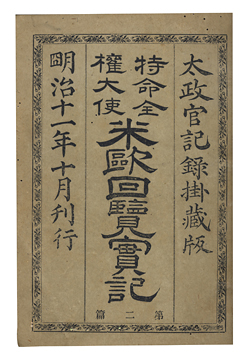 太政官記録掛藏版
特命全
權大使
米歐回覽實記
第二篇
明治十一年十月刊行